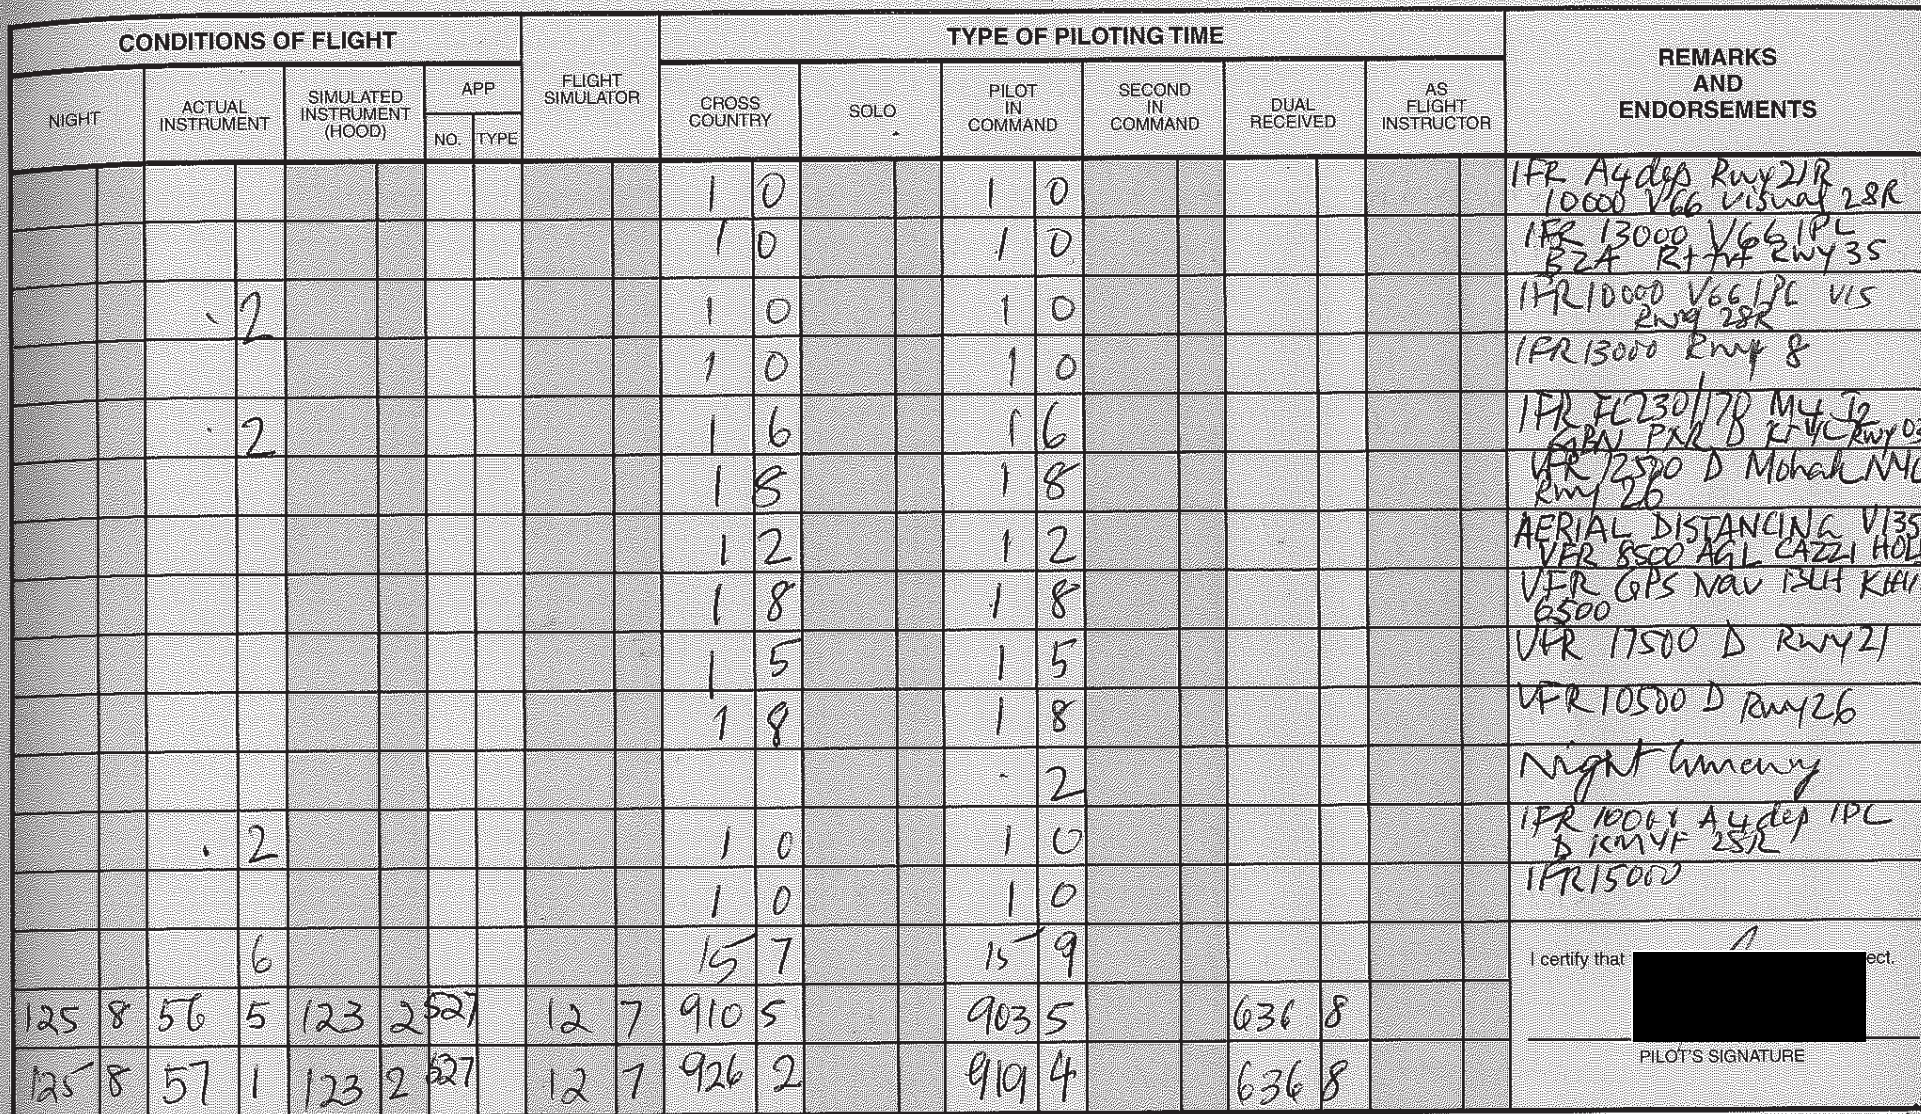 CONDITIONS OF FLIGHT
TYPE OF PILOTING TIME
REMARKS AND ENDORSEMENTS
NIGHT
ACTUAL INSTRUMENT
SIMULATED INSTRUMENT (HOOD)
APP
NO. TYPE
FLIGHT SIMULATOR
CROSS COUNTRY
SOLO
PILOT IN COMMAND
SECOND IN COMMAND
DUAL RECEIVED
AS FLIGHT INSTRUCTOR
1 0 1 0 IFR A4 dep Rwy 21R
10000 V66 Visual 28R
1 0 1 0 IFR 13000 V66 IPL
BZA Rwy 35
. 2 1 0 1 0 IFR 10000 V66 IPL VIS
Rwy 28R
1 0 1 0 IFR 13000 Rwy 8
. 2 1 6 1 6 IFR FL230/170 M4 J2
GBN PXR D Rwy 03
1 8 1 8 VFR 12500 D Mohak
Rwy 26
1 2 1 2 AERIAL DISTANCING V135
VFR 8500 AGL CAZZI HOL
1 8 1 8 VFR GPS Nav BLH
6500
1 5 1 5 VFR 17500 D Rwy 21
1 8 1 8 VFR 10500 D Rwy 26
. 2 Night
. 2 1 0 1 0 IFR A4 dep IPL
D KMYF 28R
1 0 1 0 IFR 15000
6 15 7 15 9
I certify that ect.
125 8 56 5 123 2 527 12 7 910 5 903 5 636 8
PILOT'S SIGNATURE
125 8 57 1 123 2 527 12 7 926 2 919 4 636 8